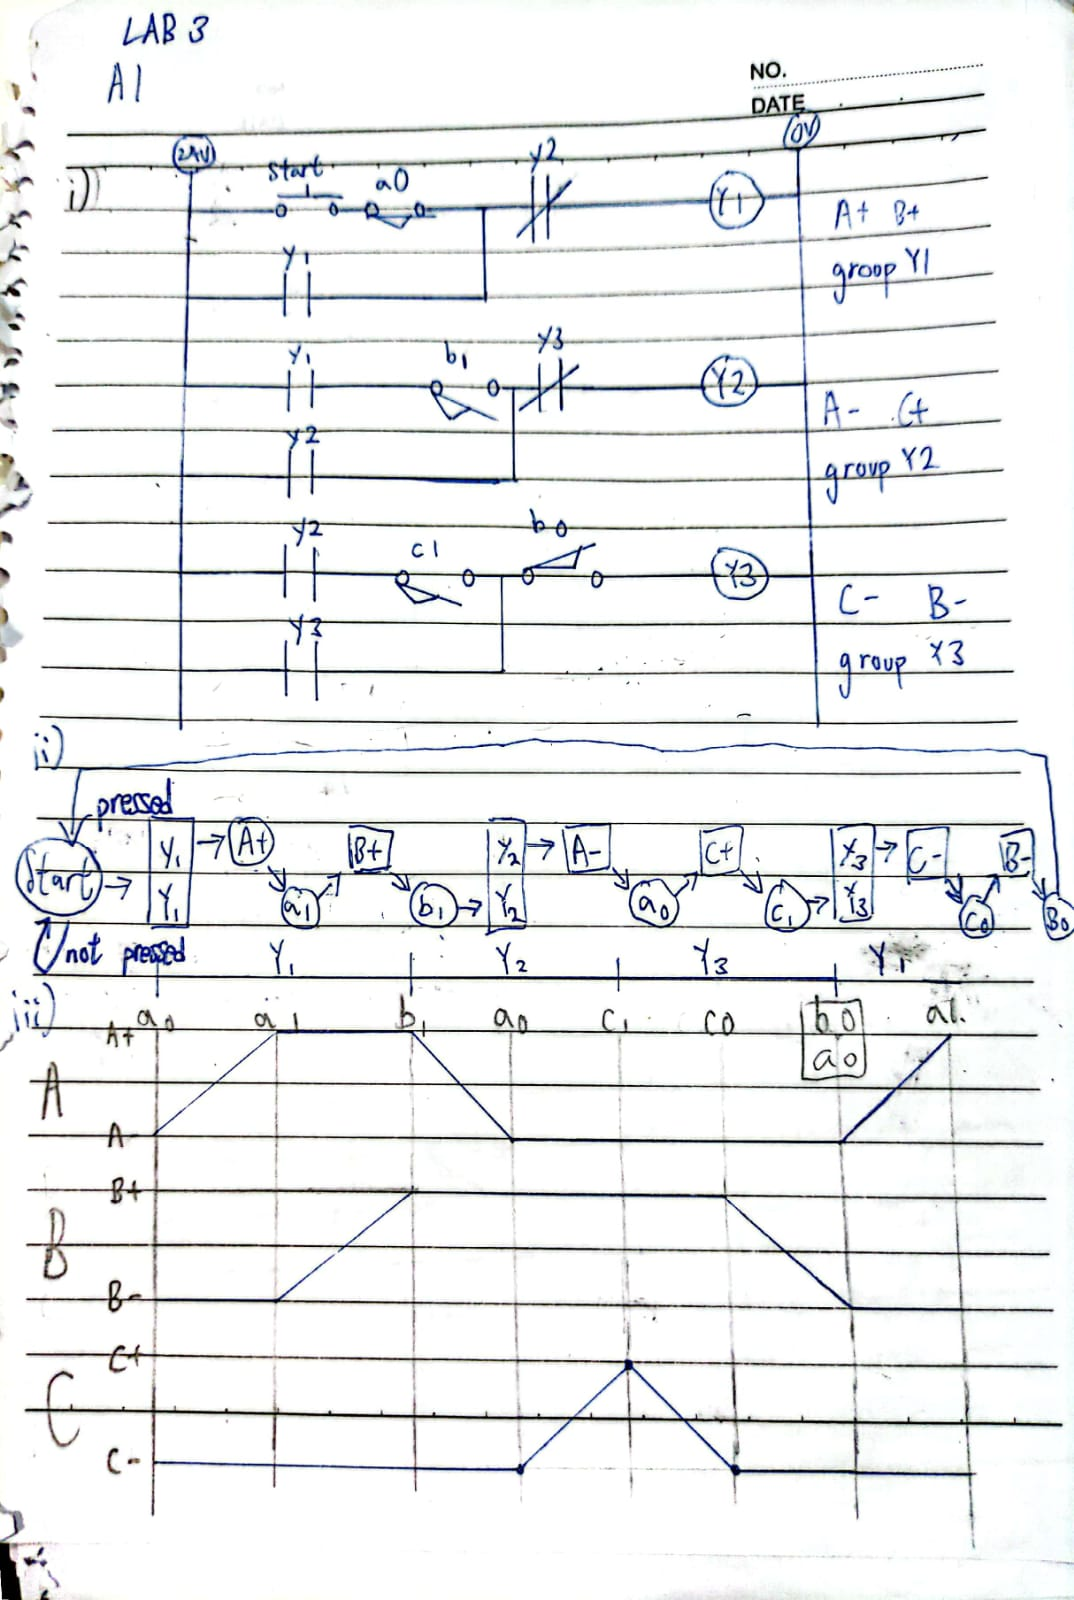 LAB 3
A1
NO.
DATE
24V
0V
i)
Start a0 y2 Y1
A+ B+
Y1
group Y1
Y1 b1 Y3 Y2
A- C+
Y2
group Y2
Y2 c1 b0 Y3
C- B-
Y3
group Y3
ii)
pressed
Start Y1 A+ B+ Y2 A- C+ Y3 C- B-
Y1 a1 b1 Y2 a0 c1 Y3 C0 B0
not pressed
Y1 Y2 Y3 Y1
iii)
a0 a1 b1 a0 C1 C0 b0 a1.
a0
A+
A
A-
B+
B
B-
C+
C
C-